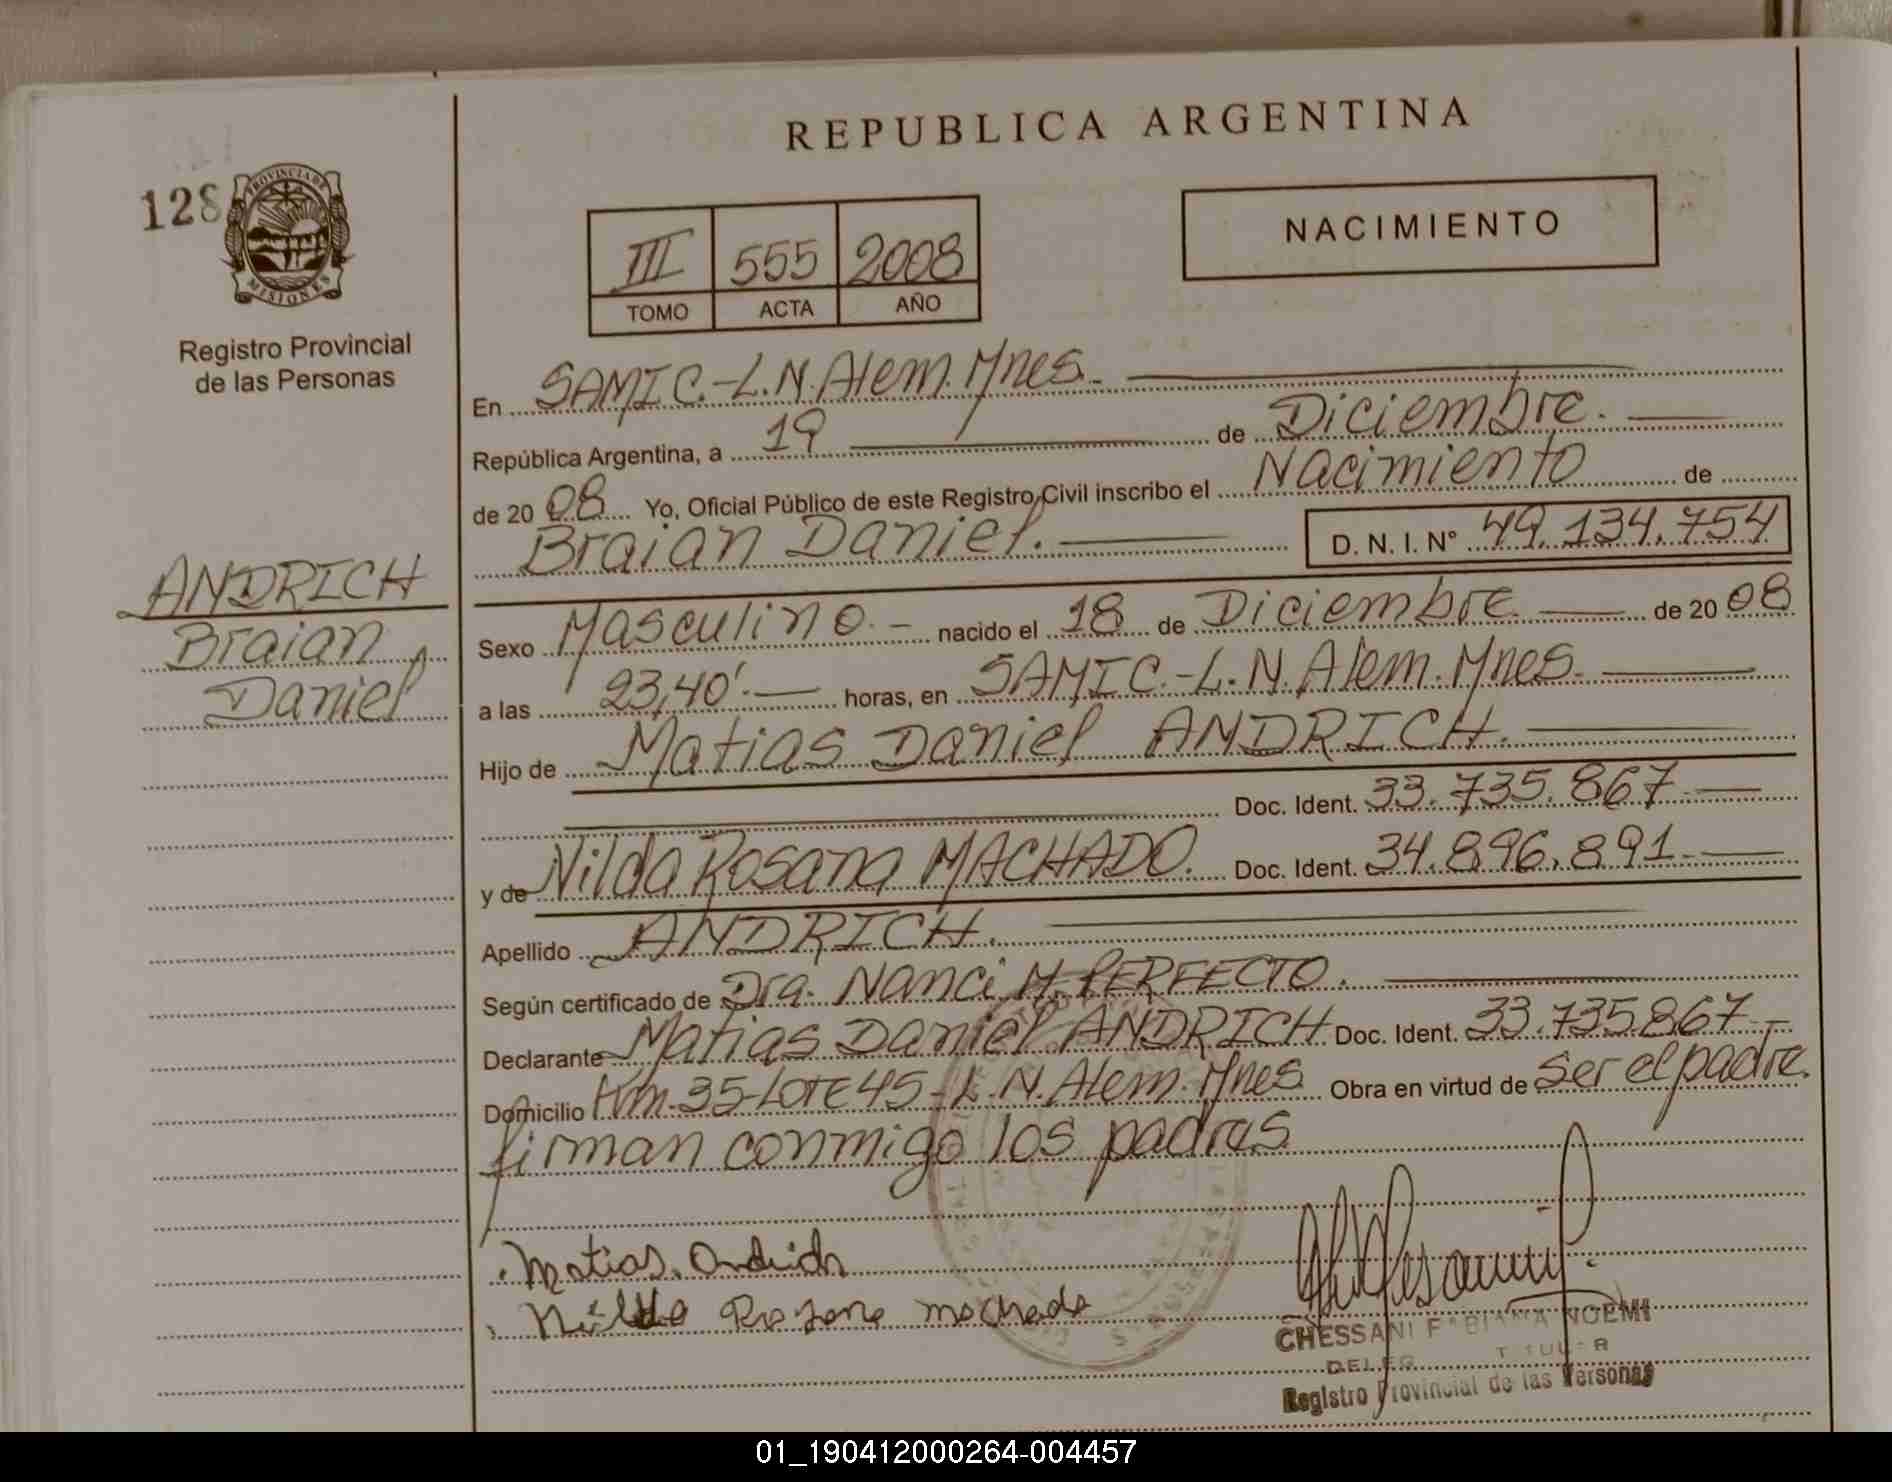 REPUBLICA ARGENTINA
128
PROVINCIA DE
MISIONES
Registro Provincial
de las Personas
III 555 2008
TOMO ACTA AÑO
NACIMIENTO
En SAMIC.-L.N.Alem.Mnes.
República Argentina, a 19 de Diciembre.
de 2008 Yo, Oficial Público de este Registro Civil inscribo el Nacimiento de
Braian Daniel. D. N. I. N° 49.134.754
ANDRICH
Braian
Daniel
Sexo Masculino.- nacido el 18 de Diciembre de 2008
a las 23,40'.- horas, en SAMIC.-L.N.Alem.Mnes.
Hijo de Matias Daniel ANDRICH.
Doc. Ident. 33.735.867.-
y de Nilda Rosana MACHADO. Doc. Ident. 34.896.891.-
Apellido ANDRICH.
Según certificado de Dra. Nanci M. PERFECTO.
Declarante Matias Daniel ANDRICH Doc. Ident. 33.735.867-
Domicilio Km.35-LOTE 45-L.N.Alem.Mnes Obra en virtud de ser el padre.
firman conmigo los padres
Matias. Andrich
Nilda Rosana Machado
CHESSANI FABIANA NOEMI
Registro Provincial de las Personas
01_190412000264-004457